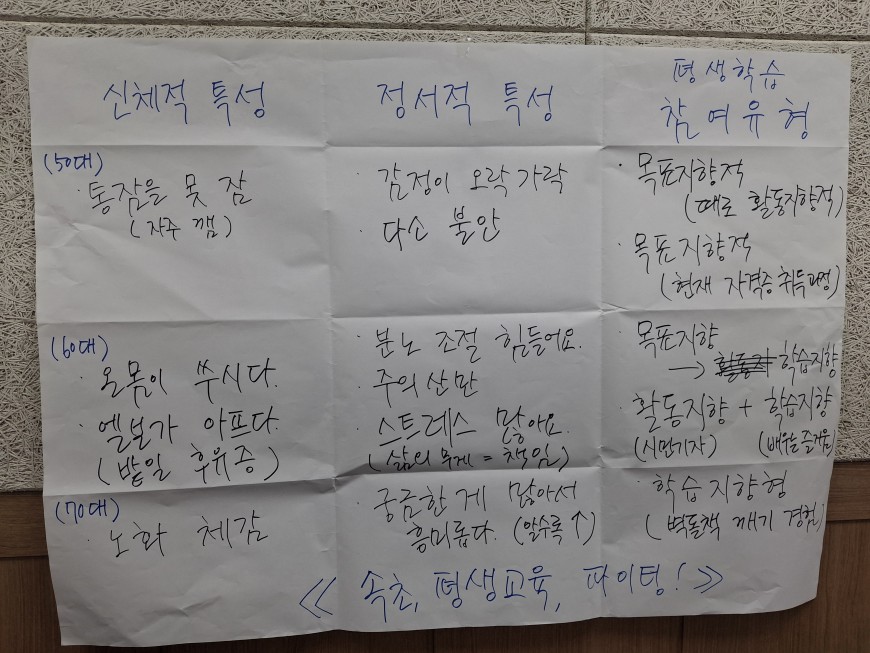 신체적 특성
정서적 특성
평생학습
참여유형
(50대)
· 통잠을 못 잠
(자주 깸)
· 감정이 오락가락
· 다소 불안
· 목표지향적
(때로 활동지향적)
· 목표지향적
(현재 자격증 취득과정)
(60대)
· 온몸이 쑤시다.
· 엘보가 아프다.
(밭일 후유증)
· 분노 조절 힘들어요.
· 주의산만
· 스트레스 많아요.
(삶의 무게 = 책임)
· 목표지향
→ 학습지향
· 활동지향 + 학습지향
(시민기자) (배우는 즐거움)
(70대)
· 노화 체감
· 궁금한 게 많아서
흥미롭다. (알수록 ↑)
· 학습지향형
(벽돌책 깨기 경험)
《 속초, 평생교육, 파이팅! 》